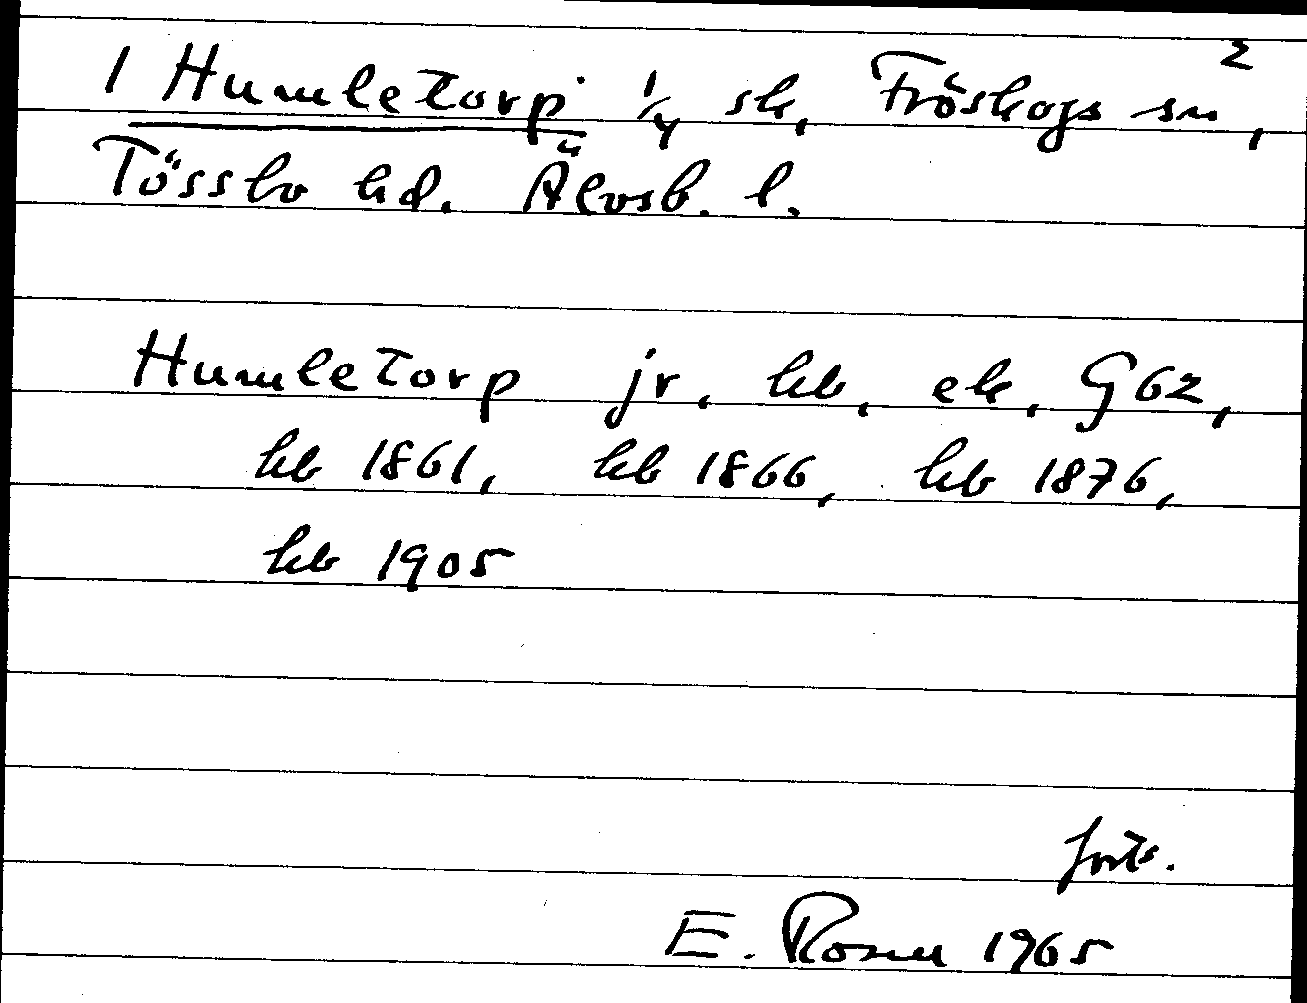 2
1 Humletorp 1/4 sk, Fröskogs sn,
Tössbo hd. Älvsb. l.
Humletorp jr. kb, ek, G62,
kb 1861, kb 1866, kb 1876,
kb 1905
forts.
E. Rosen 1965